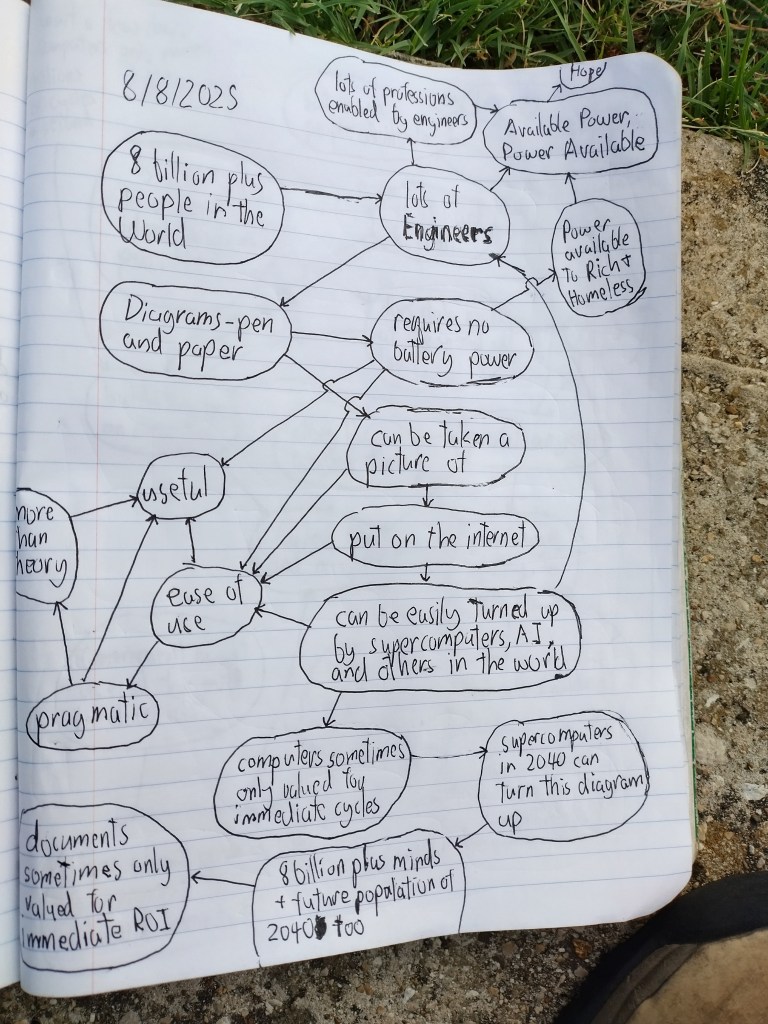 8/8/2025
Hope
lots of professions
enabled by engineers
Available Power,
Power Available
8 billion plus
people in the
World
lots of
Engineers
Power
available
To Rich +
Homeless
Diagrams-pen
and paper
requires no
battery power
can be taken a
picture of
useful
more
than
theory
put on the internet
ease of
use
can be easily turned up
by supercomputers, AI,
and others in the world
pragmatic
computers sometimes
only valued for
immediate cycles
supercomputers
in 2040 can
turn this diagram
up
documents
sometimes only
valued for
immediate ROI
8 billion plus minds
+ future population of
2040 too